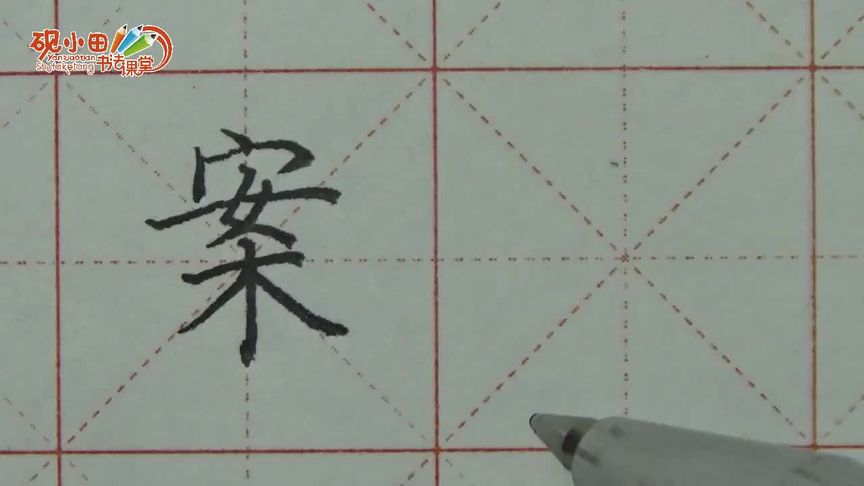 砚小田
Yanxiaotian
书法课堂
Shufaketang
案